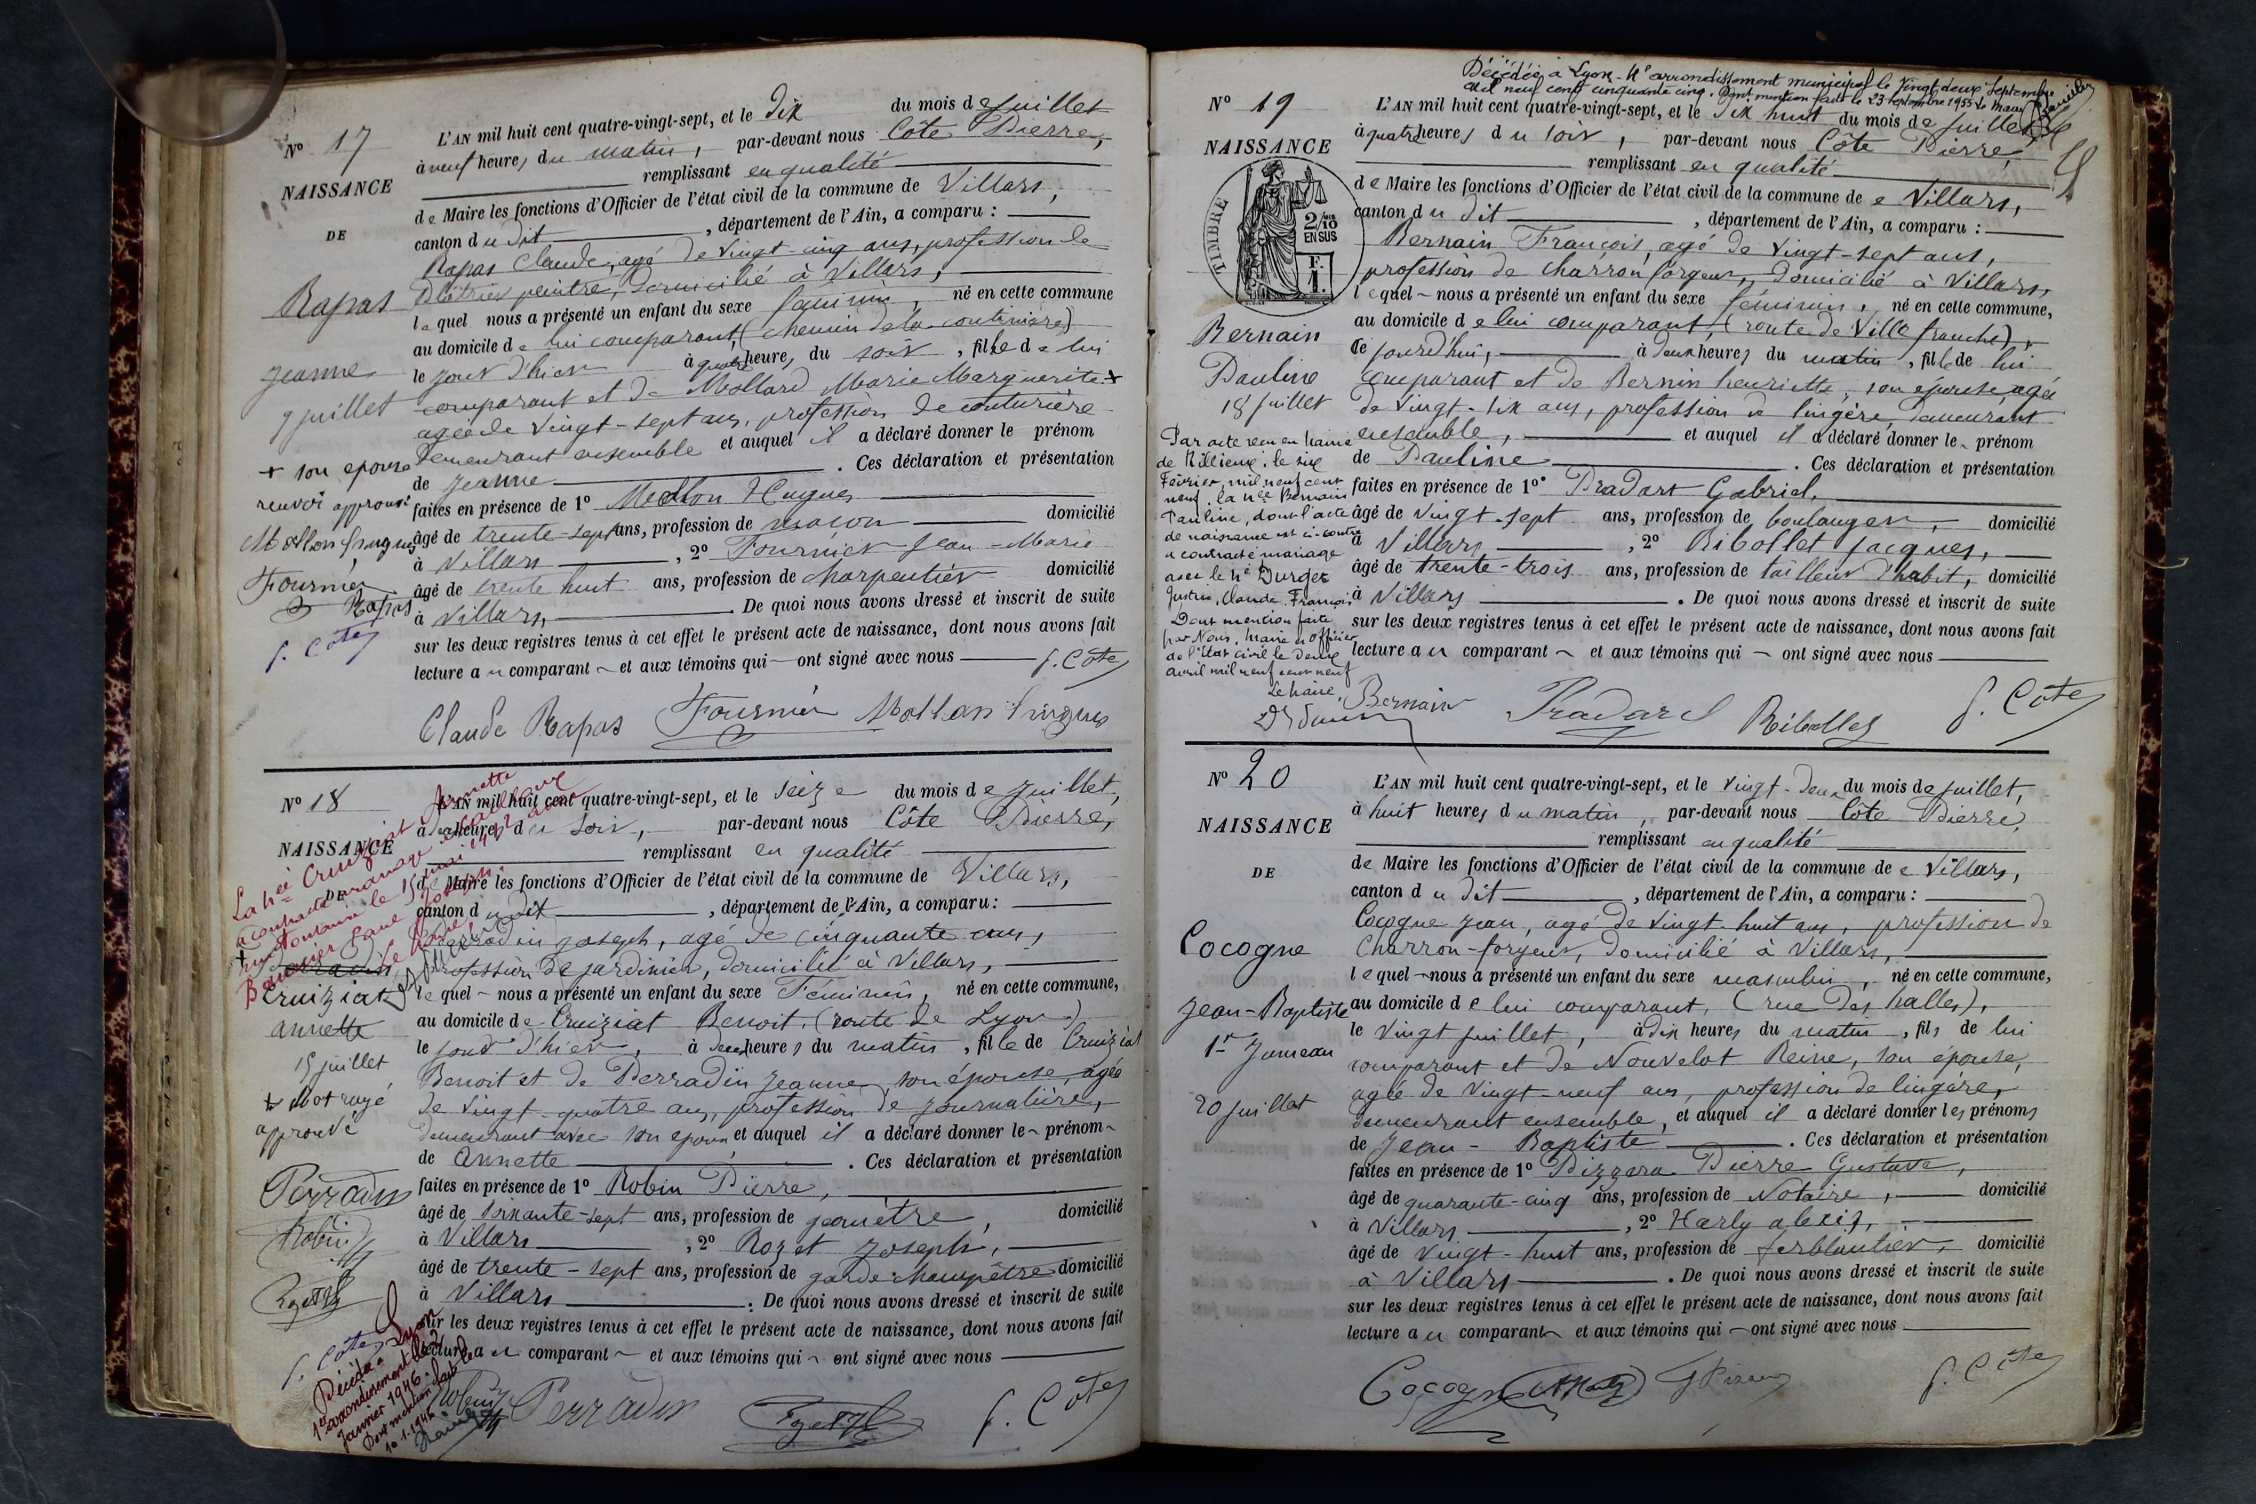 Nº 17
NAISSANCE
DE
Rapas
Jeanne
9 juillet
+ son epouse
renvoi approuvé
Mollon hugues
Fournier
Rapas
P. Côte
L'AN mil huit cent quatre-vingt-sept, et le Dix du mois de Juillet
à neuf heures du matin, par-devant nous Côte Pierre,
remplissant en qualité
de Maire les fonctions d'Officier de l'état civil de la commune de Villars,
canton du dit, département de l'Ain, a comparu :
Rapas Claude, agé de Vingt-cinq ans, profession de
Plâtrier peintre, Domicilié à Villars,
lequel nous a présenté un enfant du sexe féminin, né en cette commune
au domicile de lui comparant, (chemin de la
le jour d'hier à quatre heures du soir, fille de lui
comparant et de Mollard Marie Marguerite +
agée de Vingt-sept ans, profession de couturière
Demeurant ensemble et auquel il a déclaré donner le prénom
de Jeanne. Ces déclaration et présentation
faites en présence de 1º Mollon Hugues
âgé de trente-sept ans, profession de maçon domicilié
à Villars, 2º Fournier Jean-Marie
âgé de trente huit ans, profession de charpentier domicilié
à Villars,. De quoi nous avons dressé et inscrit de suite
sur les deux registres tenus à cet effet le présent acte de naissance, dont nous avons fait
lecture au comparant et aux témoins qui ont signé avec nous P. Côte
Claude Rapas Fournier Mollon hugues
Nº 18
NAISSANCE
DE
Cruiziat
annette
15 juillet
+ mot rayé
approuvé
Perradin
Robin
Rozet
P. Côte
La née Cruiziat Annette
a contracté mariage à Sathonay
le 15 mai 1912 avec
Paul Joseph
Le Maire
L'AN mil huit cent quatre-vingt-sept, et le seize du mois de Juillet,
à heures du soir, par-devant nous Côte Pierre,
remplissant en qualité
de Maire les fonctions d'Officier de l'état civil de la commune de Villars,
canton du dit, département de l'Ain, a comparu :
Perradin Joseph, agé de cinquante ans,
profession de jardinier, domicilié à Villars,
lequel nous a présenté un enfant du sexe Féminin, né en cette commune,
au domicile de Cruiziat Benoit, (route de Lyon)
le jour d'hier, à deux heures du matin, fille de Cruiziat
Benoit et de Perradin Jeanne son épouse, agée
de Vingt-quatre ans, profession de journalière,
Demeurant avec son époux et auquel il a déclaré donner le prénom
de Annette. Ces déclaration et présentation
faites en présence de 1º Robin Pierre,
âgé de soixante-sept ans, profession de géomètre, domicilié
à Villars, 2º Rozet Joseph,
âgé de trente-sept ans, profession de garde champêtre domicilié
à Villars. De quoi nous avons dressé et inscrit de suite
sur les deux registres tenus à cet effet le présent acte de naissance, dont nous avons fait
lecture au comparant et aux témoins qui ont signé avec nous
Décédée à Lyon
1er arrondissement le
Janvier 1946.
Dont mention faite le
10-1-1946
Robin Perradin Rozet P. Côte
Décédée à Lyon - 4e arrondissement municipal le Vingt deux Septembre
mil neuf cent cinquante cinq. Dont mention faite le 23 septembre 1955 Le Maire
Nº 19
NAISSANCE
TIMBRE
2/10 EN SUS
F.
1.
Bernain
Pauline
18 Juillet
Par acte reçu en mairie
de Rillieux, le six
Février, mil neuf cent
neuf, la née Bernain
Pauline, dont l'acte
de naissance est ci-contre
a contracté mariage
avec le né Durget
Justin, Claude, François
Dont mention faite
par Nous, maire et officier
de l'état civil le Deux
avril mil neuf cent neuf
Le maire,
L'AN mil huit cent quatre-vingt-sept, et le Dix huit du mois de Juillet
à quatre heures du soir, par-devant nous Côte Pierre,
remplissant en qualité
de Maire les fonctions d'Officier de l'état civil de la commune de Villars,
canton du dit, département de l'Ain, a comparu :
Bernain François, agé de Vingt-sept ans,
profession de charron forgeur, domicilié à Villars,
lequel nous a présenté un enfant du sexe féminin, né en cette commune,
au domicile de lui comparant, (route de Villefranche),
ce jourd'hui, à deux heures du matin, fille de lui
comparant et de Bernin henriette, son épouse agée
de Vingt-six ans, profession de lingère, demeurant
ensemble, et auquel il a déclaré donner le prénom
de Pauline. Ces déclaration et présentation
faites en présence de 1º Pradart Gabriel,
âgé de vingt-sept ans, profession de boulanger, domicilié
à Villars, 2º Ribollet Jacques,
âgé de trente-trois ans, profession de tailleur d'habit, domicilié
à Villars. De quoi nous avons dressé et inscrit de suite
sur les deux registres tenus à cet effet le présent acte de naissance, dont nous avons fait
lecture au comparant et aux témoins qui ont signé avec nous
Bernain Pradard Ribollet P. Côte
Nº 20
NAISSANCE
DE
Cocogne
Jean-Baptiste
1er Jumeau
20 juillet
L'AN mil huit cent quatre-vingt-sept, et le vingt-deux du mois de juillet,
à huit heures du matin, par-devant nous Côte Pierre,
remplissant en qualité
de Maire les fonctions d'Officier de l'état civil de la commune de Villars,
canton du dit, département de l'Ain, a comparu :
Cocogne Jean, agé de vingt-huit ans, profession de
Charron-forgeur, Domicilié à Villars,
lequel nous a présenté un enfant du sexe masculin, né en cette commune,
au domicile de lui comparant, (rue des halles),
le Vingt juillet, à dix heures du matin, fils de lui
comparant et de Nouvelot Reine, son épouse,
agée de vingt-neuf ans, profession de lingère,
demeurant ensemble, et auquel il a déclaré donner les prénoms
de Jean-Baptiste. Ces déclaration et présentation
faites en présence de 1º Pizzera Pierre Gustave,
âgé de quarante-cinq ans, profession de Notaire, domicilié
à Villars, 2º Harly alexis,
âgé de Vingt-huit ans, profession de ferblantier, domicilié
à Villars. De quoi nous avons dressé et inscrit de suite
sur les deux registres tenus à cet effet le présent acte de naissance, dont nous avons fait
lecture au comparant et aux témoins qui ont signé avec nous
Cocogne P. Côte